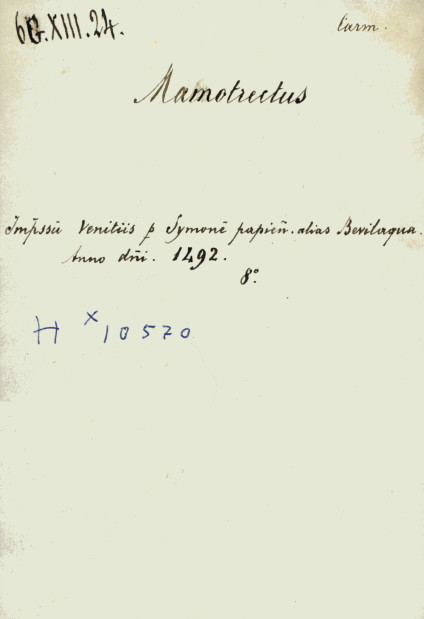 6G.XIII.24.
Carm.
Mamotrectus
Imp̄ssū Venitiis p̄ Symonē papieñ. alias Bevilaqua.
Anno dn̄i. 1492.
8°.
H x 10570